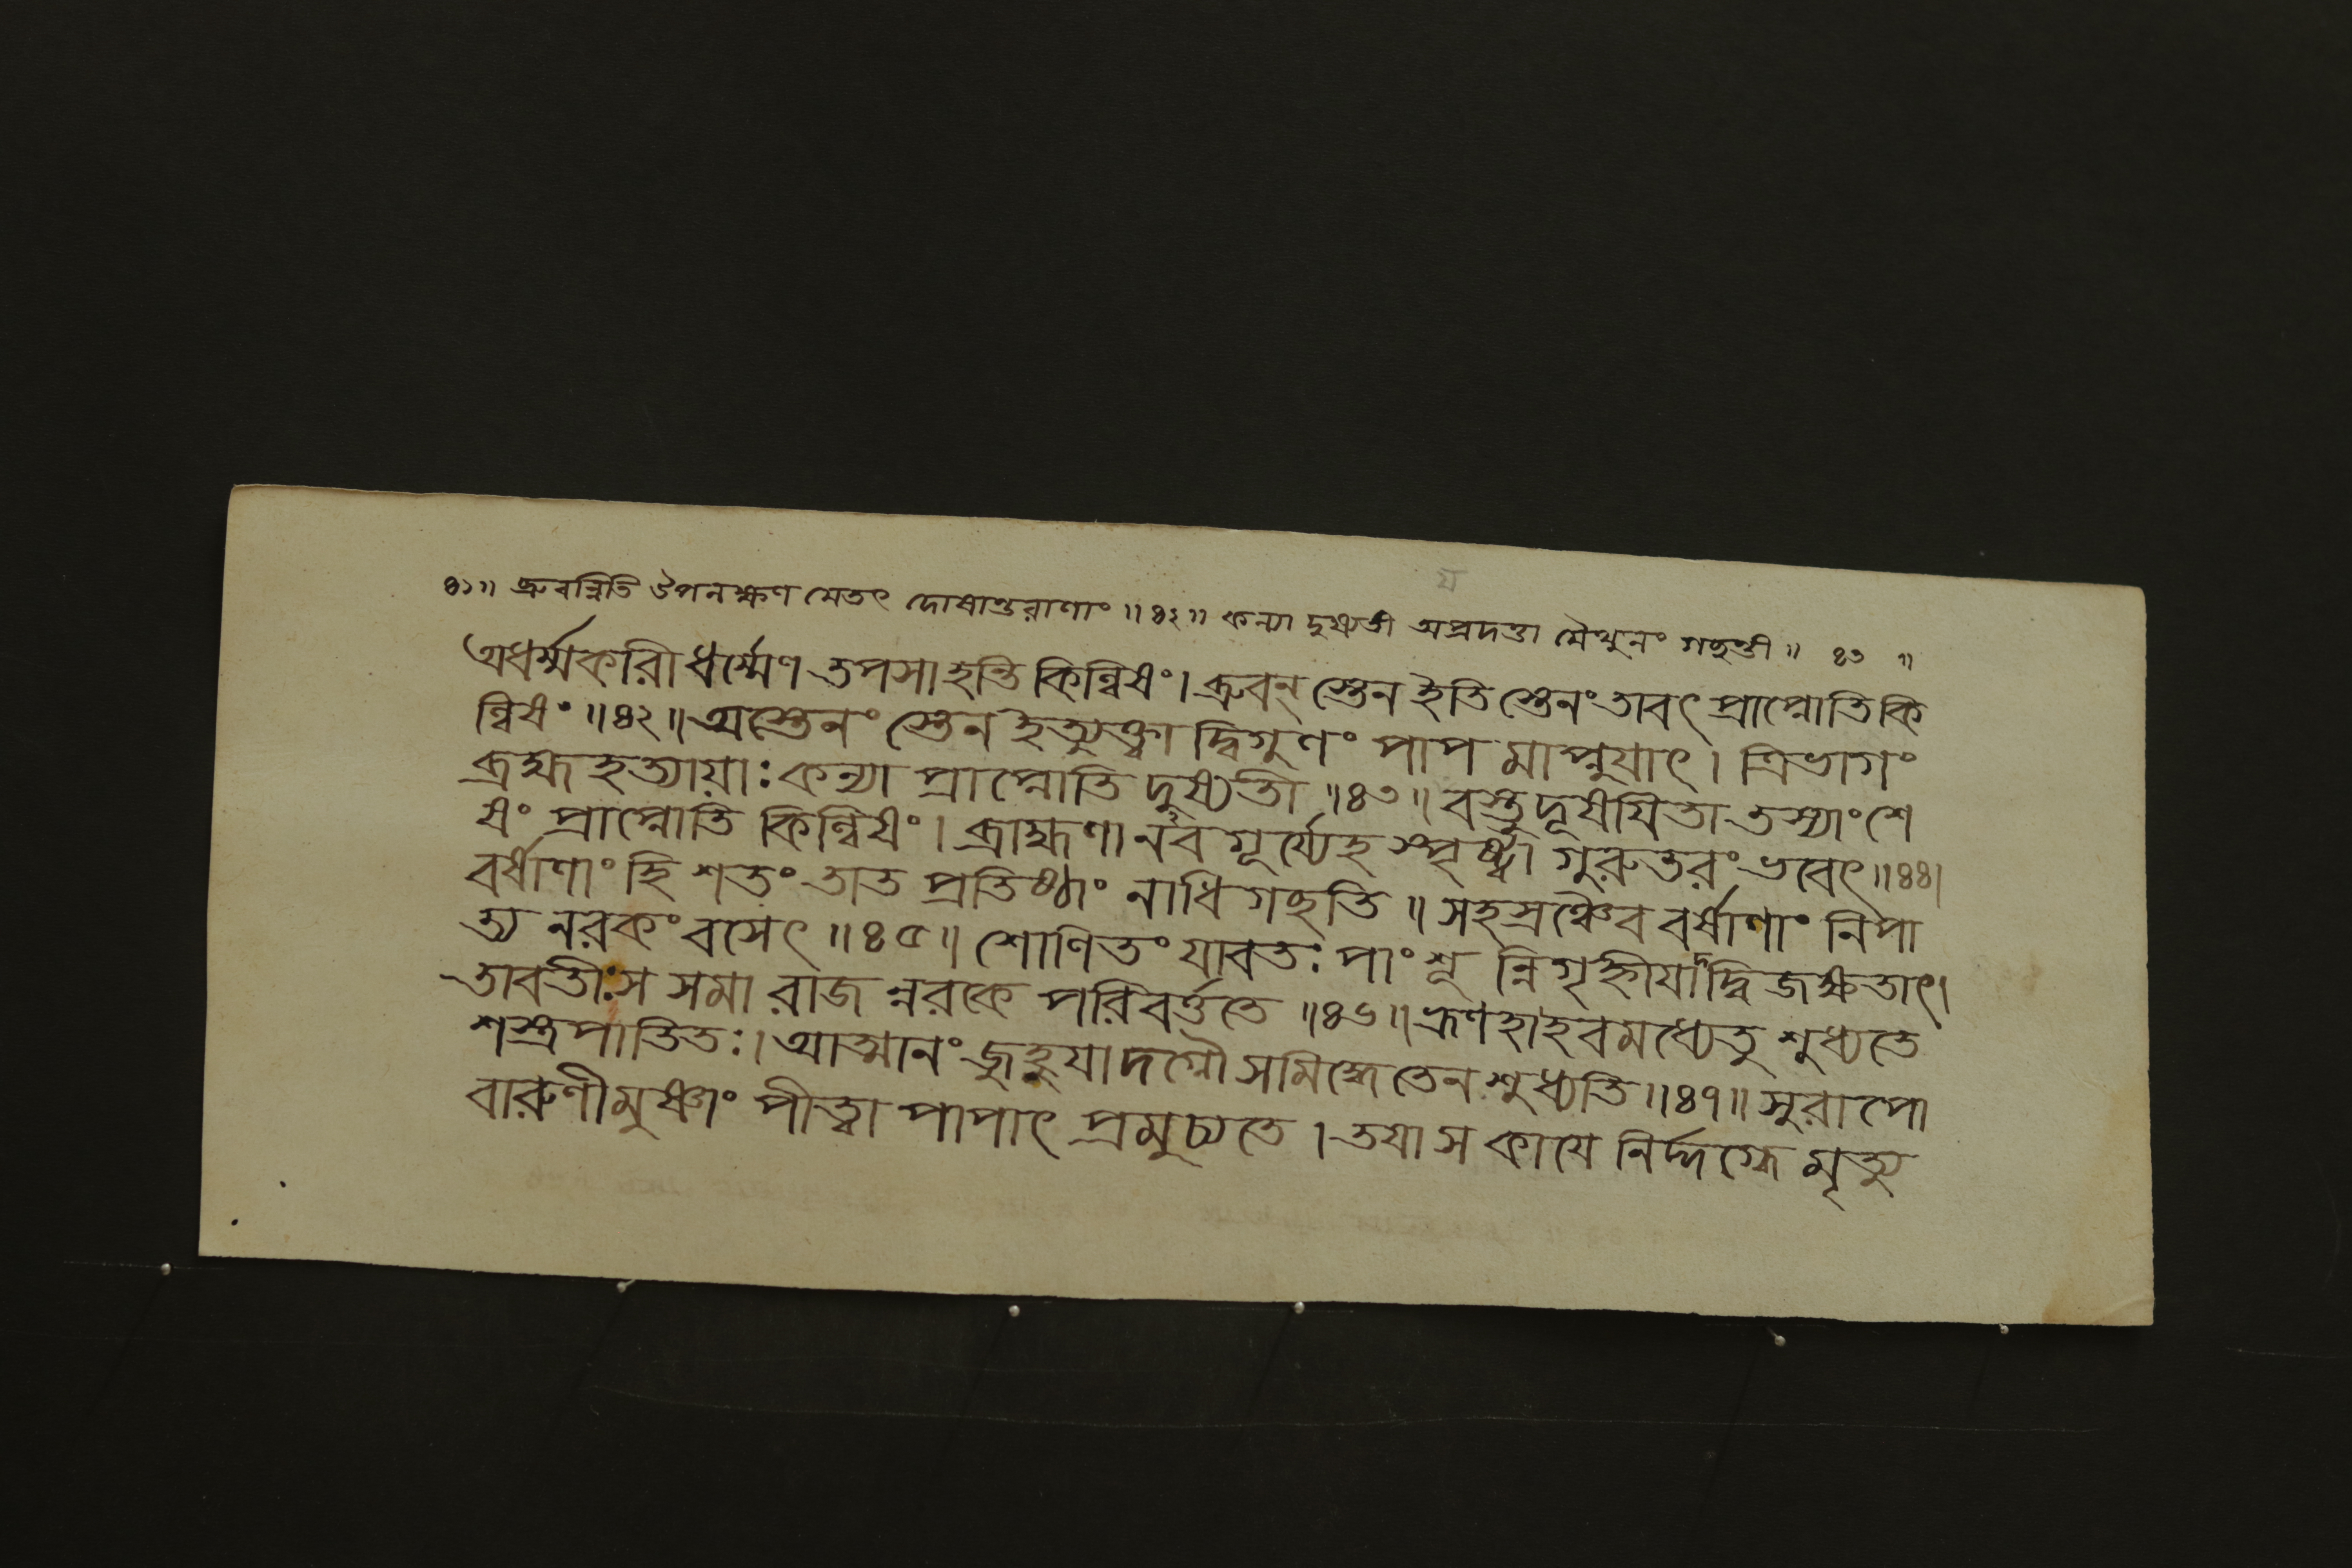 ৪১॥ ব্রুবন্নিতি উপলক্ষণ মেতৎ দোষান্তরাণাং ॥৪২॥ কন্যা দুষ্যতী অপ্রদত্তা মৈথুনং গচ্ছন্তী ॥ ৪৩ ॥
অধর্ম্মকারী ধর্ম্মেণ তপসা হন্তি কিল্বিষং। ব্রুবন্ স্তেন ইতি স্তেনং তাবৎ প্রাপ্নোতি কি
ল্বিষং ॥৪২॥ অস্তেনং স্তেন ইত্যুক্ত্বা দ্বিগুণং পাপ মাপ্নুযাৎ। ত্রিভাগং
ব্রহ্ম হত্যায়াঃ কন্যা প্রাপ্নোতি দুষ্যতী ॥৪৩॥ যস্তু দূষযিতা তস্যাং শে
ষং প্রাপ্নোতি কিল্বিষং। ব্রাহ্মণা নবগূর্য্যেহ স্পৃষ্ট্বা গুরুতরং ভবেৎ ॥৪৪।
বর্ষাণাং হি শতং তাত প্রতিষ্ঠাং নাধি গচ্ছতি ॥ সহস্রঞ্চৈব বর্ষাণাং নিপা
ত্য নরকং বসেৎ ॥৪৫॥ শোণিতং যাবতঃ পাংশূ ন্নিগৃহ্নীযাদ্দ্বিজক্ষতাৎ।
তাবতীঃ স সমা রাজ ন্নরকে পরিবর্ত্ততে ॥৪৬॥ ভ্রূণহাহবমধ্যেতু শুধ্যতে
শস্ত্রপাতিতঃ। আত্মানং জুহুযাদগ্নৌ সমিদ্ধে তেন শুধ্যতি ॥৪৭॥ সুরাপো
বারুণীমুষ্ণাং পীত্বা পাপাৎ প্রমুচ্যতে। তযা স কাযে নির্দ্দগ্ধে মৃত্যু